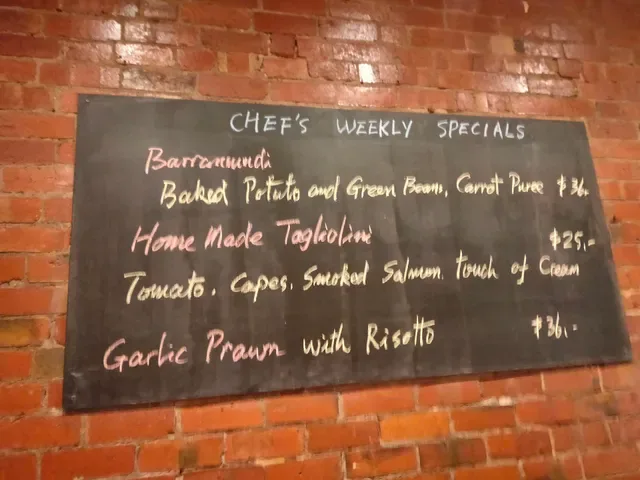 CHEF'S WEEKLY SPECIALS
Barramundi
Baked Potato and Green Beans, Carrot Puree $36.
Home Made Tagliolini $25,-
Tomato, Capes, Smoked Salmon, touch of Cream
Garlic Prawn with Risotto $36,-